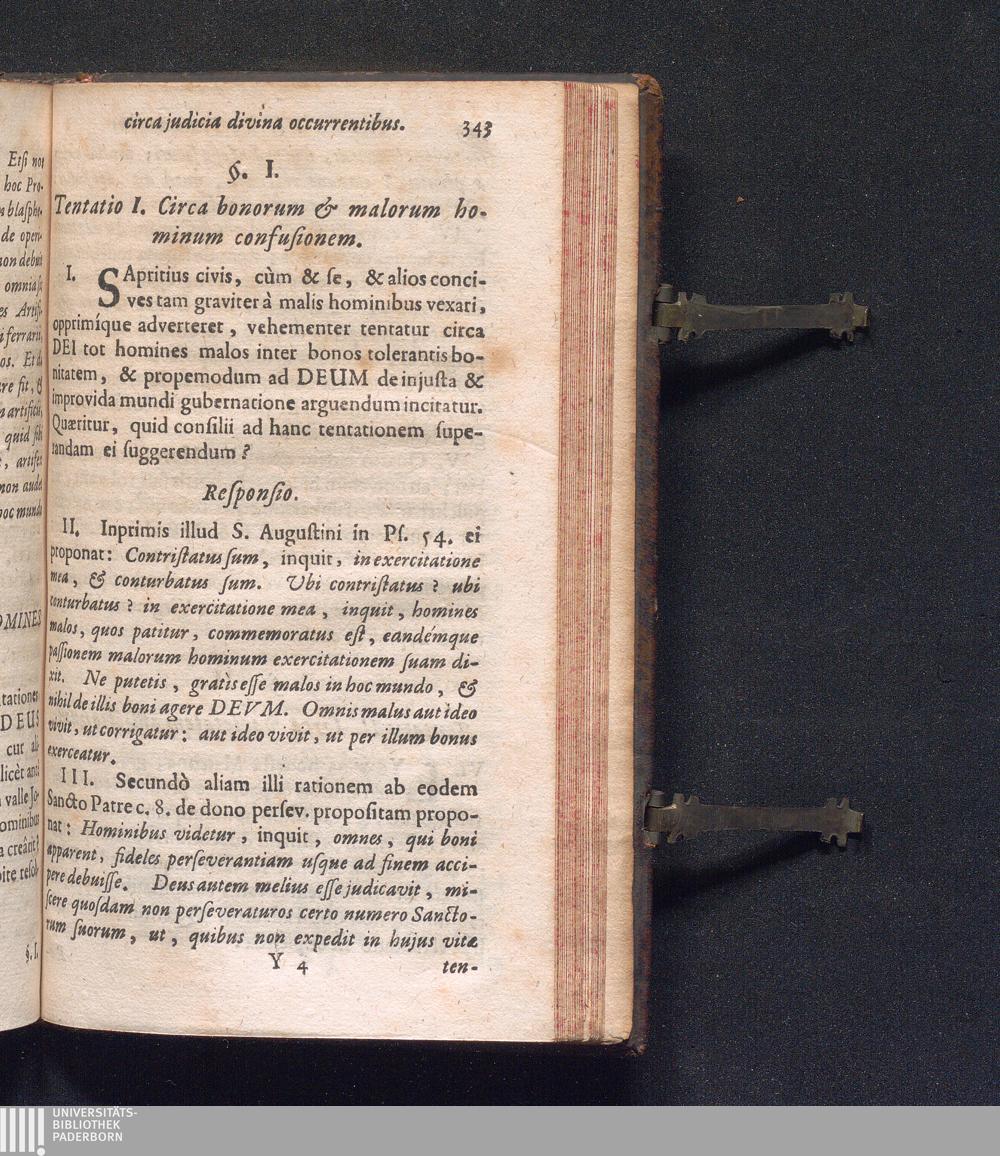 Etsi non
hoc Pro-
blasphe-
de oper-
non debuit
omnia
es Artif-
i ferrarii
os. Et
re sit, &
artificii,
quid sibi
, artifex
non audet
hoc mundo
OMINES
tationes
DEUS
cur ali-
licèt
valle Jo-
hominibus
creânt?
§. I.
circa judicia divina occurrentibus. 343
§. I.
Tentatio I. Circa bonorum & malorum ho-
minum confuſionem.
I. SApritius civis, cùm & ſe, & alios conci-
ves tam graviter à malis hominibus vexari,
opprimíque adverteret, vehementer tentatur circa
DEI tot homines malos inter bonos tolerantis bo-
nitatem, & propemodum ad DEUM de injuſta &
improvida mundi gubernatione arguendum incitatur.
Quæritur, quid conſilii ad hanc tentationem ſupe-
randam ei ſuggerendum?
Reſponſio.
II. Inprimis illud S. Auguſtini in Pſ. 54. ei
proponat: Contriſtatus ſum, inquit, in exercitatione
mea, & conturbatus ſum. Ubi contriſtatus? ubi
conturbatus? in exercitatione mea, inquit, homines
malos, quos patitur, commemoratus eſt, eandémque
paſſionem malorum hominum exercitationem ſuam di-
xit. Ne putetis, gratìs eſſe malos in hoc mundo, &
nihil de illis boni agere DEVM. Omnis malus aut ideo
vivit, ut corrigatur: aut ideo vivit, ut per illum bonus
exerceatur.
III. Secundò aliam illi rationem ab eodem
Sancto Patre c. 8. de dono perſev. propoſitam propo-
nat: Hominibus videtur, inquit, omnes, qui boni
apparent, fideles perſeverantiam uſque ad finem acci-
pere debuiſſe. Deus autem melius eſſe judicavit, mi-
ſcere quoſdam non perſeveraturos certo numero Sancto-
rum ſuorum, ut, quibus non expedit in hujus vitæ
Y 4 ten-
UNIVERSITÄTS-
BIBLIOTHEK
PADERBORN